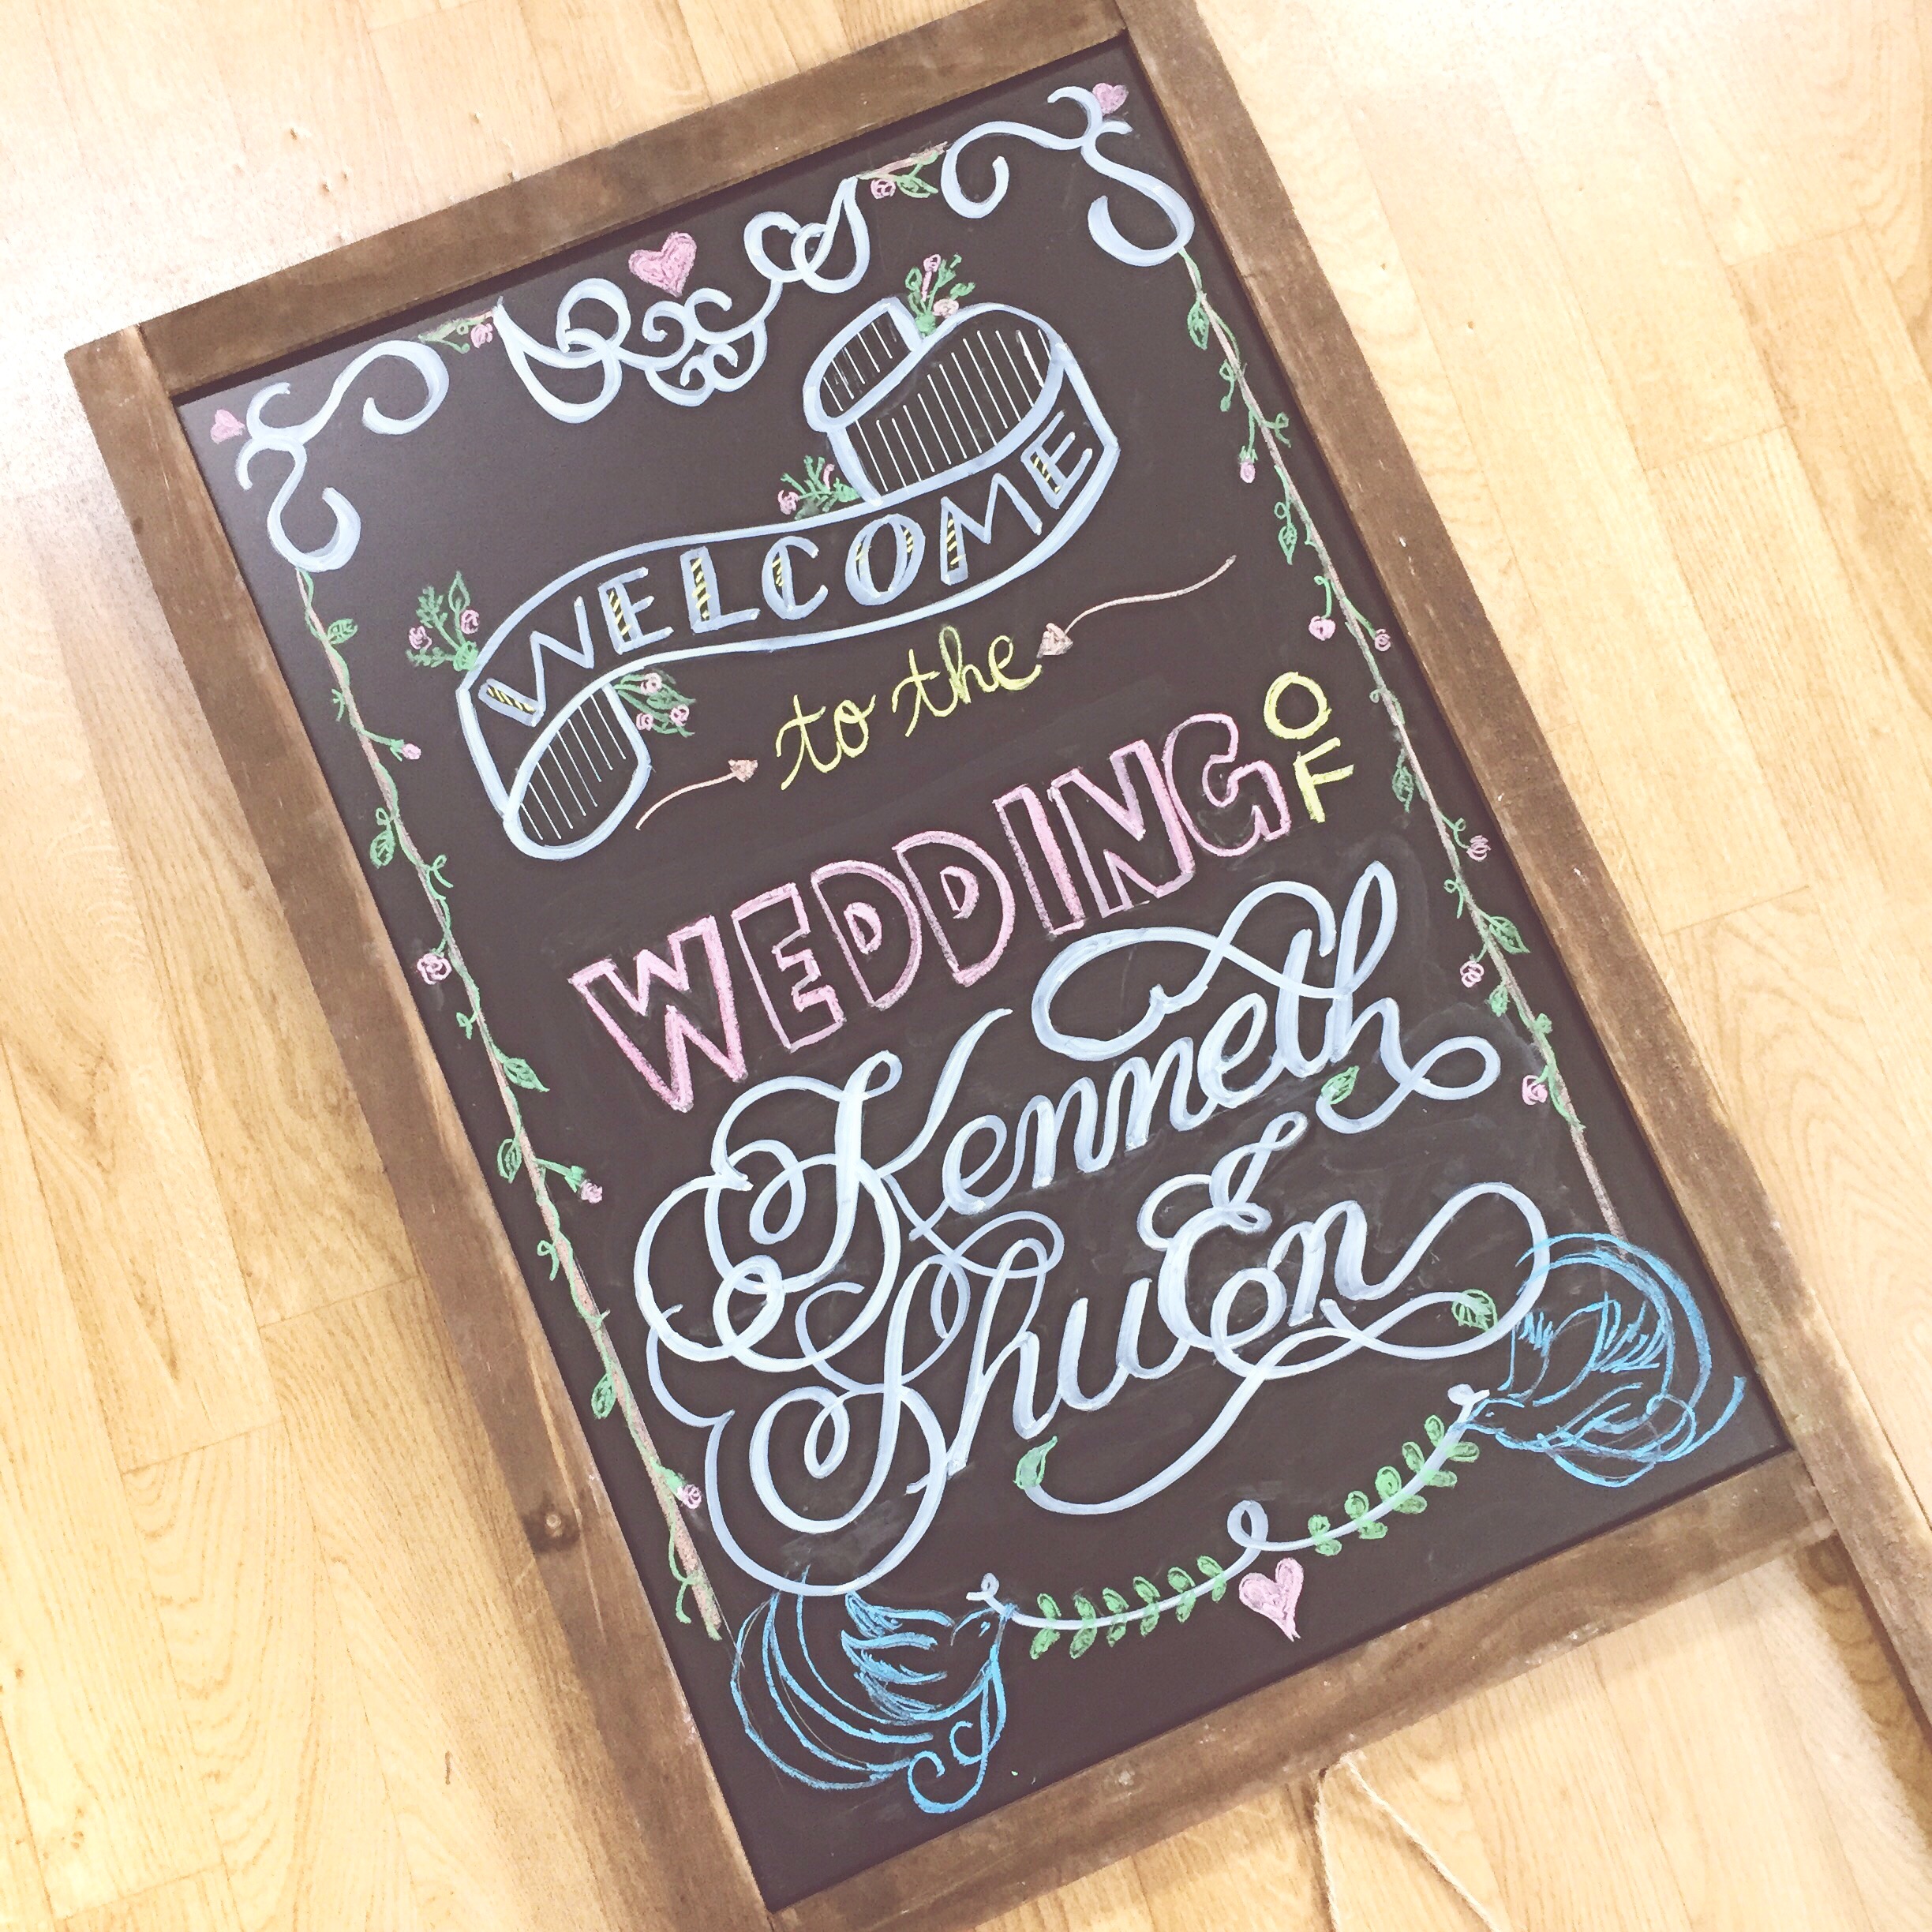 WELCOME
to the
WEDDING OF
Kenneth
&
ShuEn